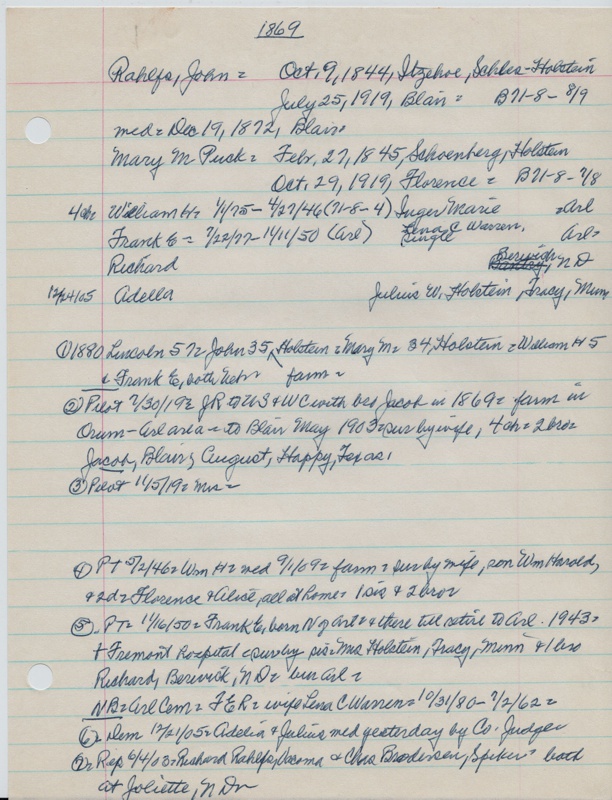 1869
Rahlfs, John = Oct. 9, 1844, Itzehoe, Schles-Holstein
July 25, 1919, Blair = B71-8-8/9
med = Dec 19, 1872, Blair =
Mary M Puck = Febr. 27, 1845, Schoenberg, Holstein
Oct. 29, 1919, Florence = B71-8-7/8
4 ch = William H = 1/1/75 - 4/27/46 (71-8-4) Inger Marie = Arl
Frank E = 7/22/77 - 11/11/50 (Arl) Lena C Warren, Single Arl =
Richard Berwick, ND
12/24/05 Adella Julius W. Holstein, Tracy, Minn
① 1880 Lincoln 57 = John 35, Holstein = Mary M = 34, Holstein = William H 5
& Frank E, both Nebr = farm =
② Pilot 7/30/19 = JR to US & WC with bro Jacob in 1869 = farm in
Orum-Arl area = to Blair May 1903 = sur by wife, 4 ch = 2 bro =
Jacob, Blair, August, Happy, Texas,
③ Pilot 11/5/19 = Mrs =
④ PT 5/2/46 = Wm H = med 9/1/09 = farm = sur by wife, son Wm Harold,
& 2 d = Florence & Alice, all at home = 1 sis & 2 bro =
⑤ PT = 11/16/50 = Frank E, born N of Arl = & there till retire to Arl. 1943 =
+ Fremont Hospital = sur by sis = Mrs Holstein, Tracy, Minn & 1 bro
Richard, Berwick, ND = bur Arl =
NB = Arl Cem = F E R = wife Lena C Warren = 10/31/80 - 7/2/62 =
⑥ Dem 12/21/05 = Adelia & Julius med yesterday by Co. Judge
⑦ Rep 6/4/03 = Richard Rahlfs, Nacoma & Chas Brodersen, Spiker = both
at Joliette, N D =